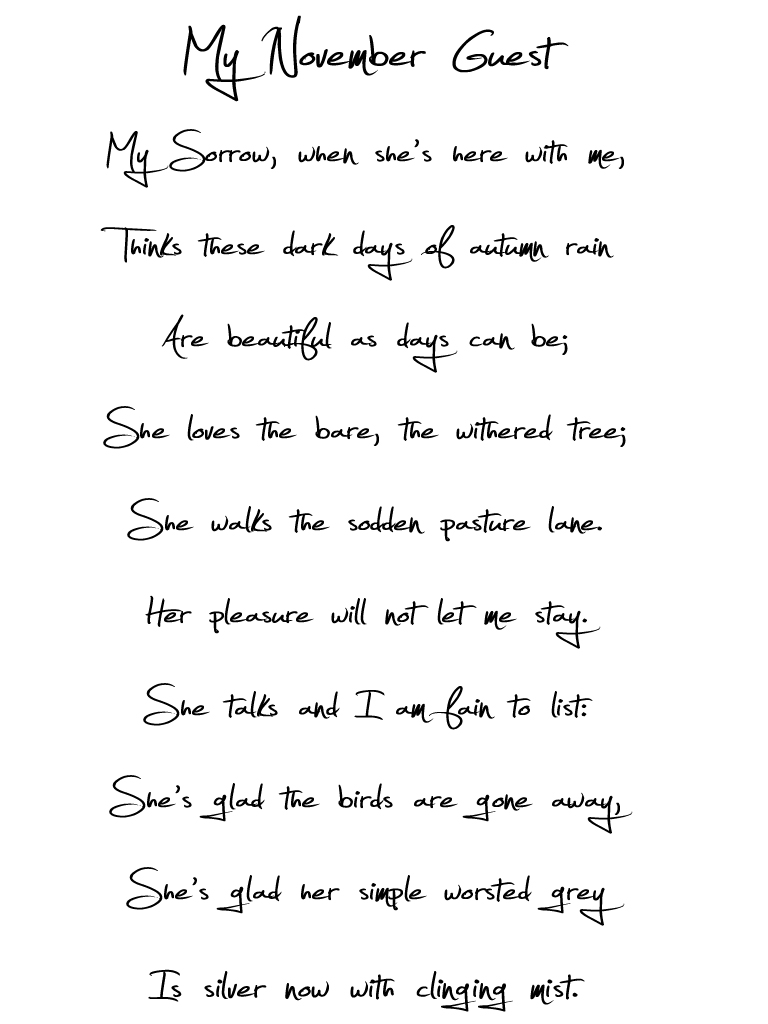 My November Guest
My Sorrow, when she's here with me,
Thinks these dark days of autumn rain
Are beautiful as days can be;
She loves the bare, the withered tree;
She walks the sodden pasture lane.
Her pleasure will not let me stay.
She talks and I am fain to list:
She's glad the birds are gone away,
She's glad her simple worsted grey
Is silver now with clinging mist.